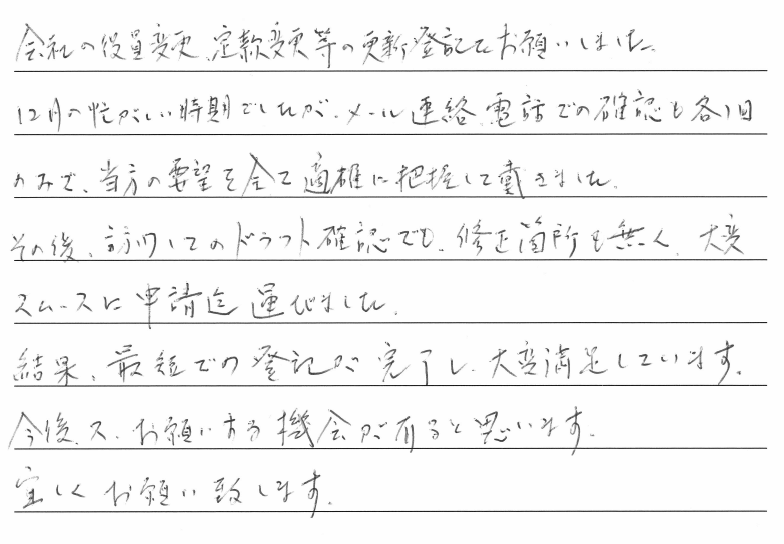 会社の役員変更、定款変更等の更新登記をお願いしました。
12月の忙がしい時期でしたが、メール連絡、電話での確認も各1回
のみで、当方の要望を全て適確に把握して戴きました。
その後、訪問してのドラフト確認でも、修正箇所も無く、大変
スムースに申請迄運びました。
結果、最短での登記が完了し、大変満足しています。
今後、又、お願いする機会が有ると思います。
宜しくお願い致します。